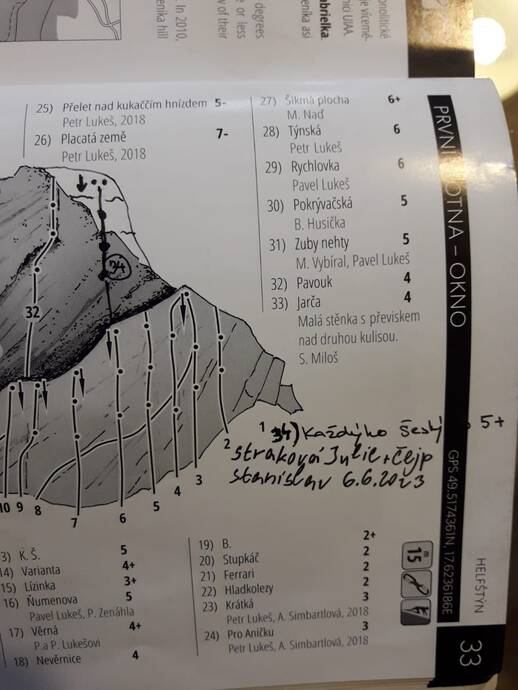 In 2010,
degrees
e or less
y of their
25) Přelet nad kukaččím hnízdem 5-
Petr Lukeš, 2018
26) Placatá země 7-
Petr Lukeš, 2018
27) Šikmá plocha 6+
M. Naď
28) Týnská 6
Petr Lukeš
29) Rychlovka 6
Pavel Lukeš
30) Pokrývačská 5
B. Husička
31) Zuby nehty 5
M. Vybíral, Pavel Lukeš
32) Pavouk 4
33) Jarča 4
Malá stěnka s převisem
nad druhou kulisou.
S. Miloš
34
32
34) Každýho šestý 5+
Straková Julie + Čejp
Stanislav 6.6.2023
1
2
3
4
5
6
7
8
9
10
3) K. Š. 5
14) Varianta 4+
15) Lízinka 3+
16) Ňumenova 5
Pavel Lukeš, P. Zenáhla
17) Věrná 4+
P. a P. Lukešovi
18) Nevěrnice 4
19) B. 2+
20) Stupkáč 2
21) Ferrari 2
22) Hladkolezy 2
23) Krátká 3
Petr Lukeš, A. Simbartlová, 2018
24) Pro Aničku 3
Petr Lukeš, A. Simbartlová, 2018
OKNO
GPS 49.5174361N, 17.6236186E
15 m
HELFŠTÝN
33